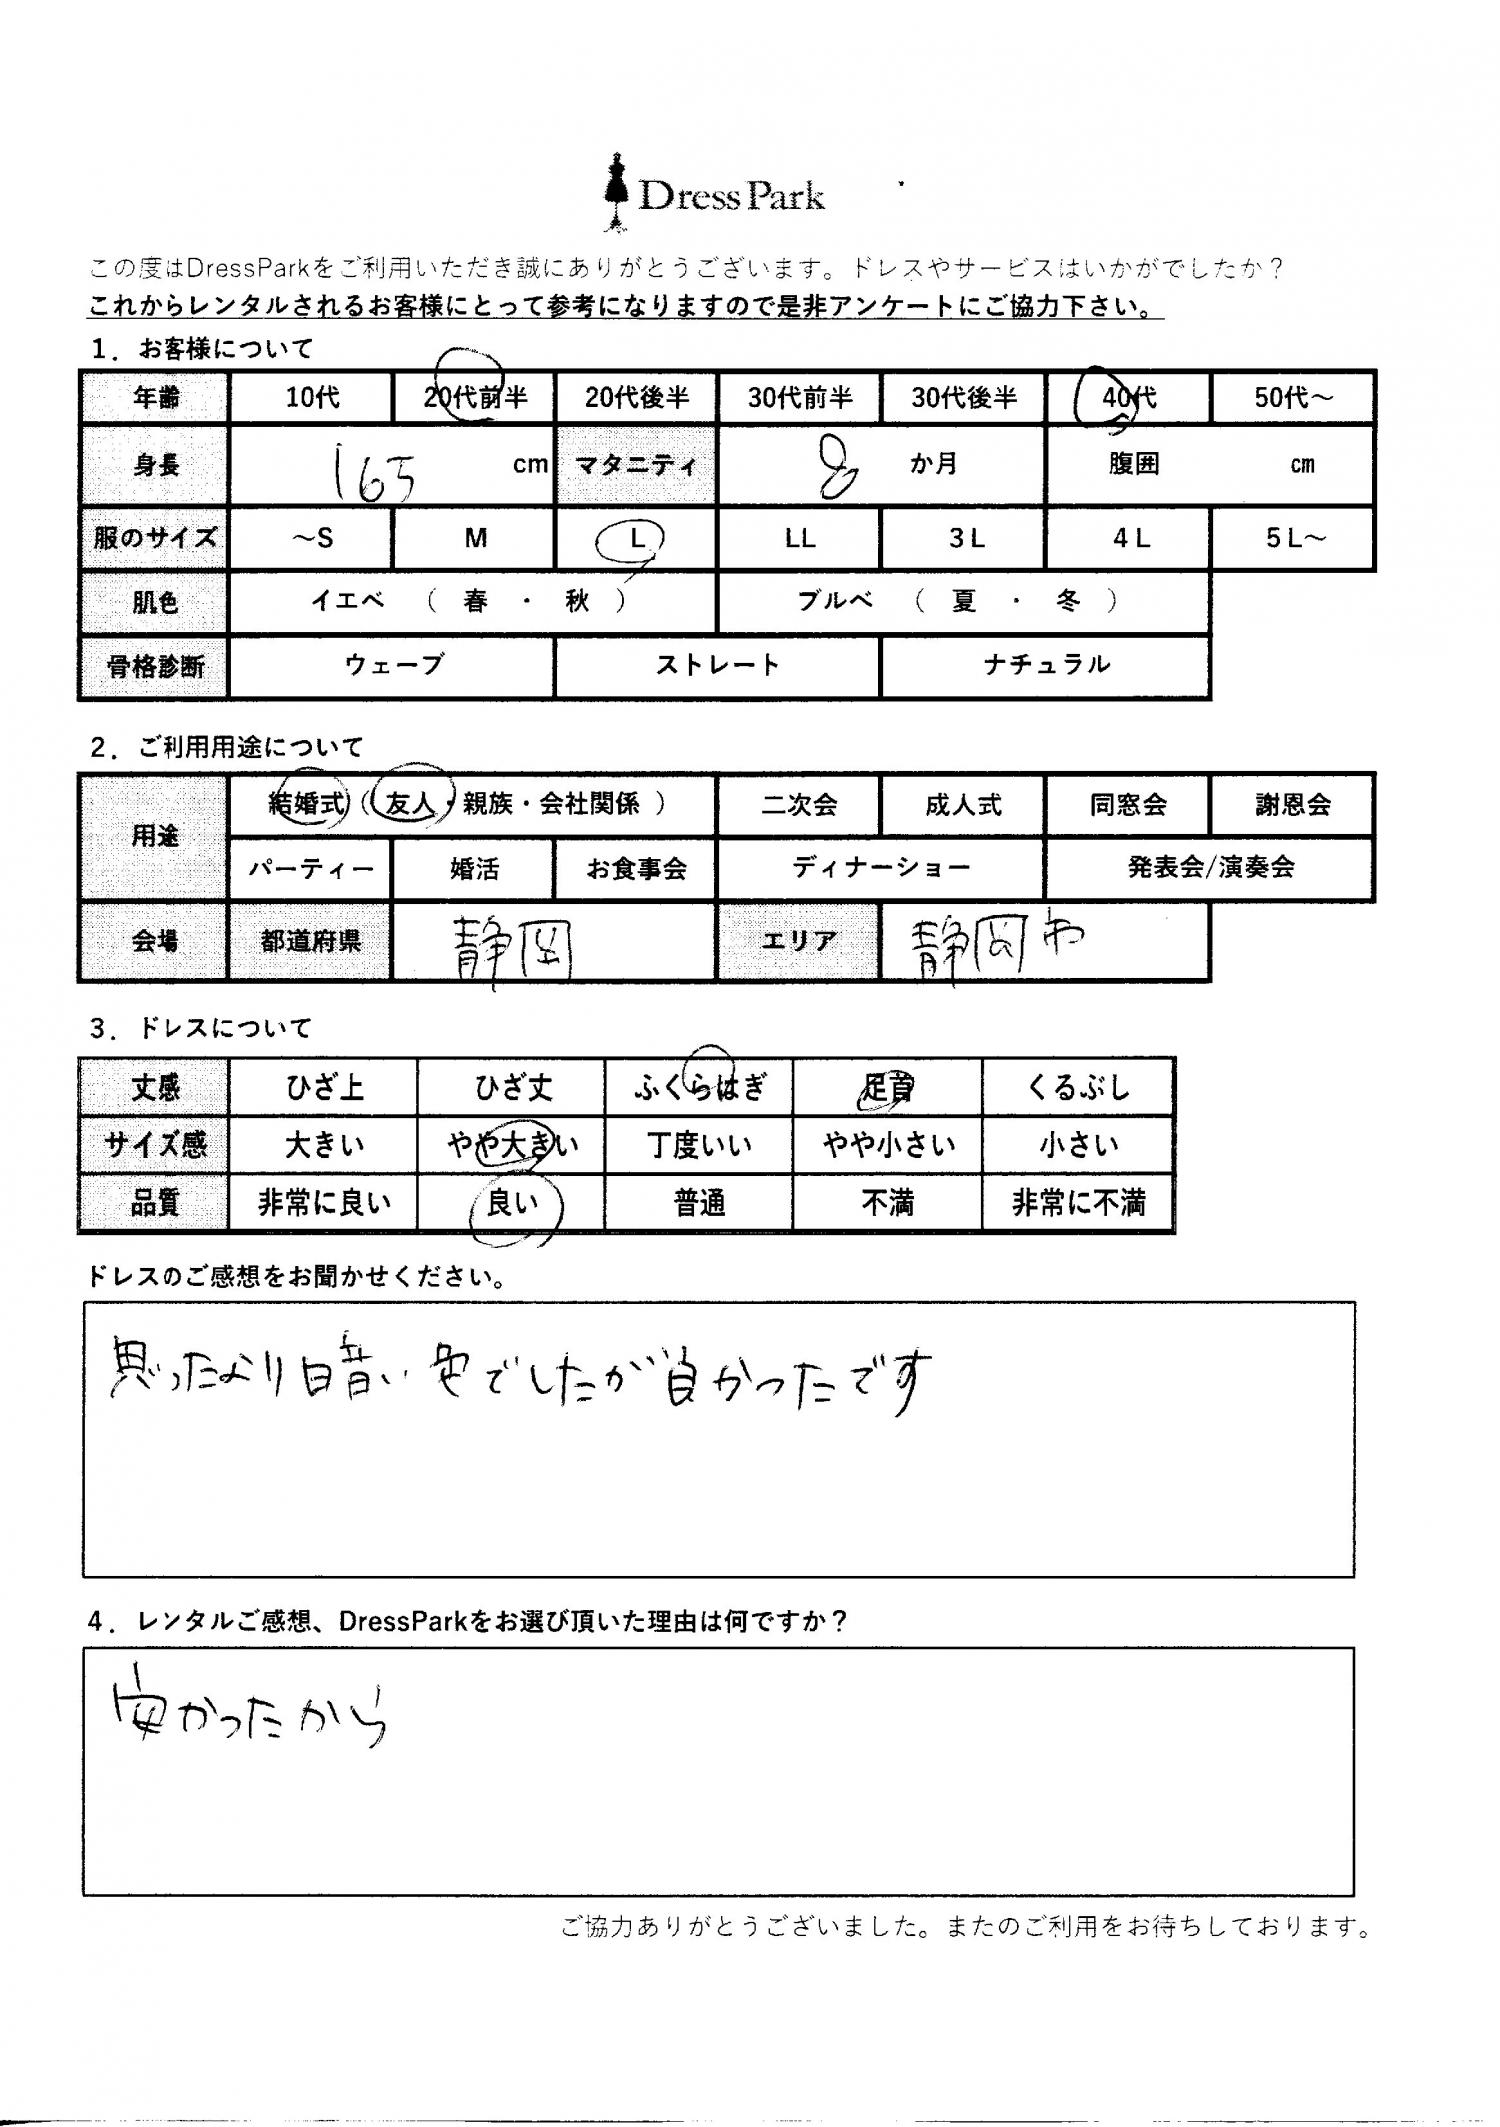 Dress Park
この度はDressParkをご利用いただき誠にありがとうございます。ドレスやサービスはいかがでしたか？
これからレンタルされるお客様にとって参考になりますので是非アンケートにご協力下さい。
1．お客様について
年齢 10代 20代前半 20代後半 30代前半 30代後半 40代 50代～
身長 165 cm マタニティ 8 か月 腹囲 cm
服のサイズ ～S M L LL 3L 4L 5L～
肌色 イエベ （ 春 ・ 秋 ） ブルベ （ 夏 ・ 冬 ）
骨格診断 ウェーブ ストレート ナチュラル
2．ご利用用途について
用途 結婚式（ 友人・親族・会社関係 ） 二次会 成人式 同窓会 謝恩会
パーティー 婚活 お食事会 ディナーショー 発表会/演奏会
会場 都道府県 静岡 エリア 静岡市
3．ドレスについて
丈感 ひざ上 ひざ丈 ふくらはぎ 足首 くるぶし
サイズ感 大きい やや大きい 丁度いい やや小さい 小さい
品質 非常に良い 良い 普通 不満 非常に不満
ドレスのご感想をお聞かせください。
思ったより暗い色でしたが良かったです
4．レンタルご感想、DressParkをお選び頂いた理由は何ですか？
安かったから
ご協力ありがとうございました。またのご利用をお待ちしております。